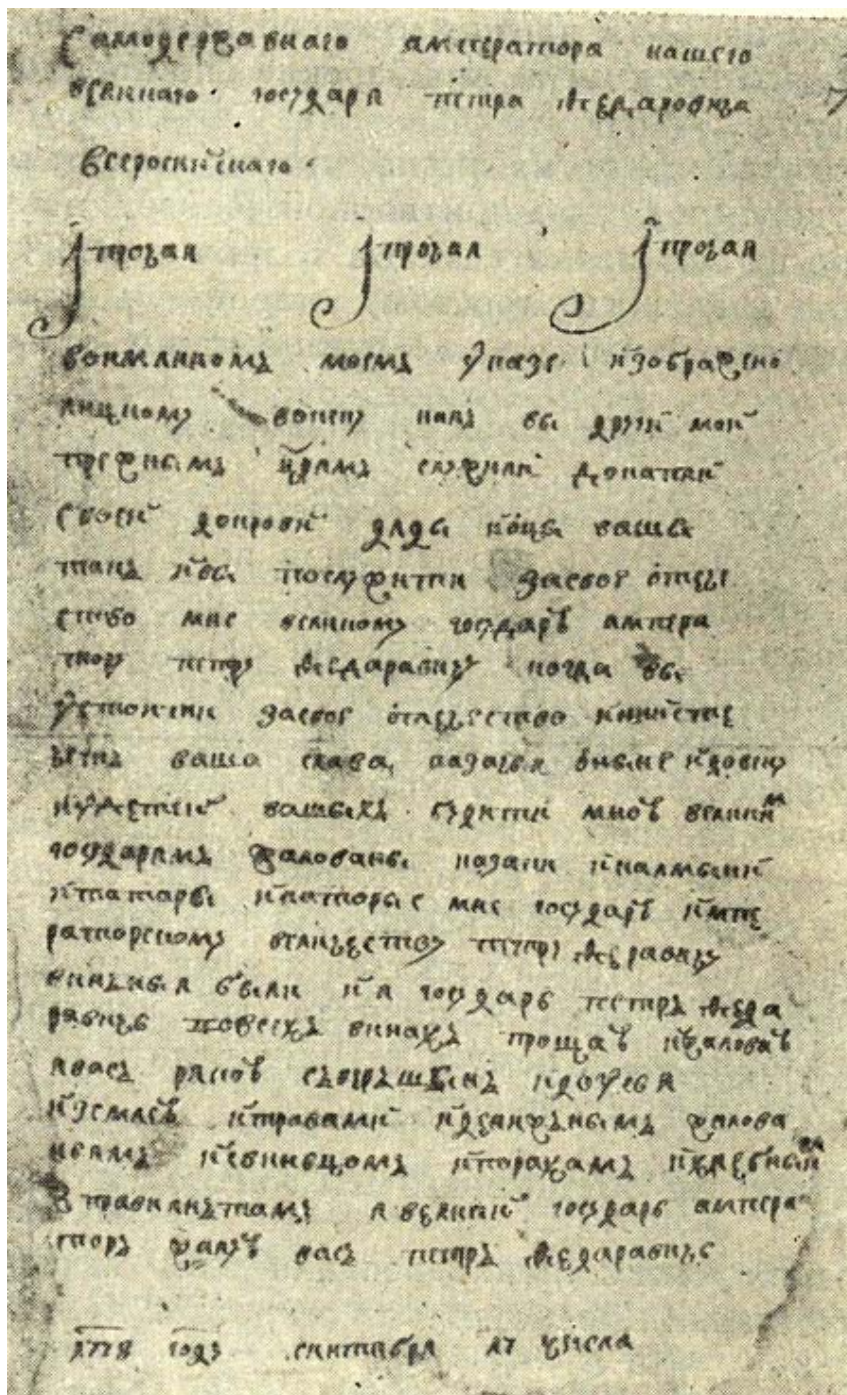 Самодержавнаго амператора нашего
великаго государя Петра Ѳедаровича
всероскийскаго
и прочая и прочая и прочая
во имянномъ моемъ указе изображено
яицкому войску какъ вы други мои
прежнымъ царямъ служили до капли
своей до крови дяды и оцы вашы
такъ и вы послужити за свое отече
ство мне великому государю ампера
тору Петру Ѳедаравичу когда вы
устоити за свое отечество и ни исте
четъ ваша слава казачья от ныне и до веку
и у детей вашыхъ будити мною великимъ
государямъ жалованы казаки и калмыки
и татары и каторые мне государю импе
раторскому величеству Петру Ѳе равичу
винъныя были и я государь Петръ Ѳеда
равичь во всехъ винахъ прощаю и жаловаю
я васъ рякою с верхъ шынъ и до усья
и землею и травами и денижънымъ жалова
ньямъ и свиньцомъ и порахамъ и хлебныимъ
правиянътамъ я великий государь ампера
торъ жалую васъ Петръ Ѳедаравичь
году сентября числа